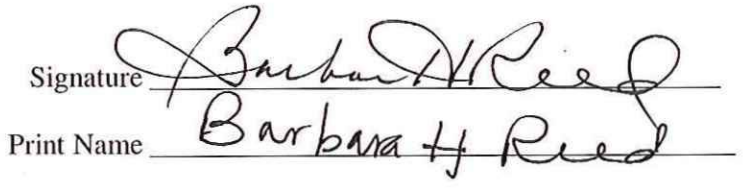 Signature Barbara H Reed
Print Name Barbara H Reed